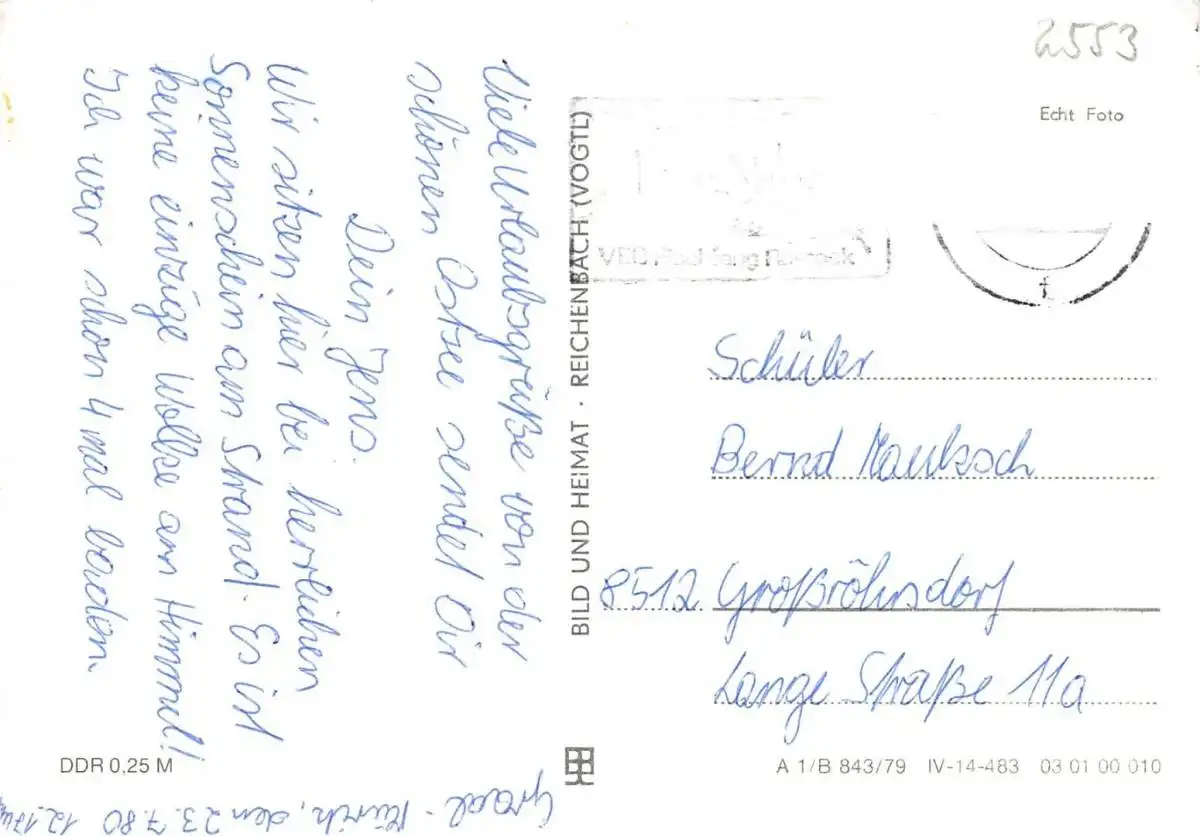 2553
Echt Foto
Graal-Müritz, den 23.7.80 12.17
Viele Urlaubsgrüße von der
schönen Ostsee sendet Dir
Dein Jens.
Wir sitzen hier bei herrlichen
Sonnenschein am Strand. Es ist
keine einzige Wolke am Himmel!
Ich war schon 4 mal baden.
BILD UND HEIMAT · REICHENBACH (VOGTL)
VEB
Schüler
Bernd Mauksch
8512 Großröhrsdorf
Lange Straße 11a
DDR 0,25 M
A 1/B 843/79 IV-14-483 03 01 00 010